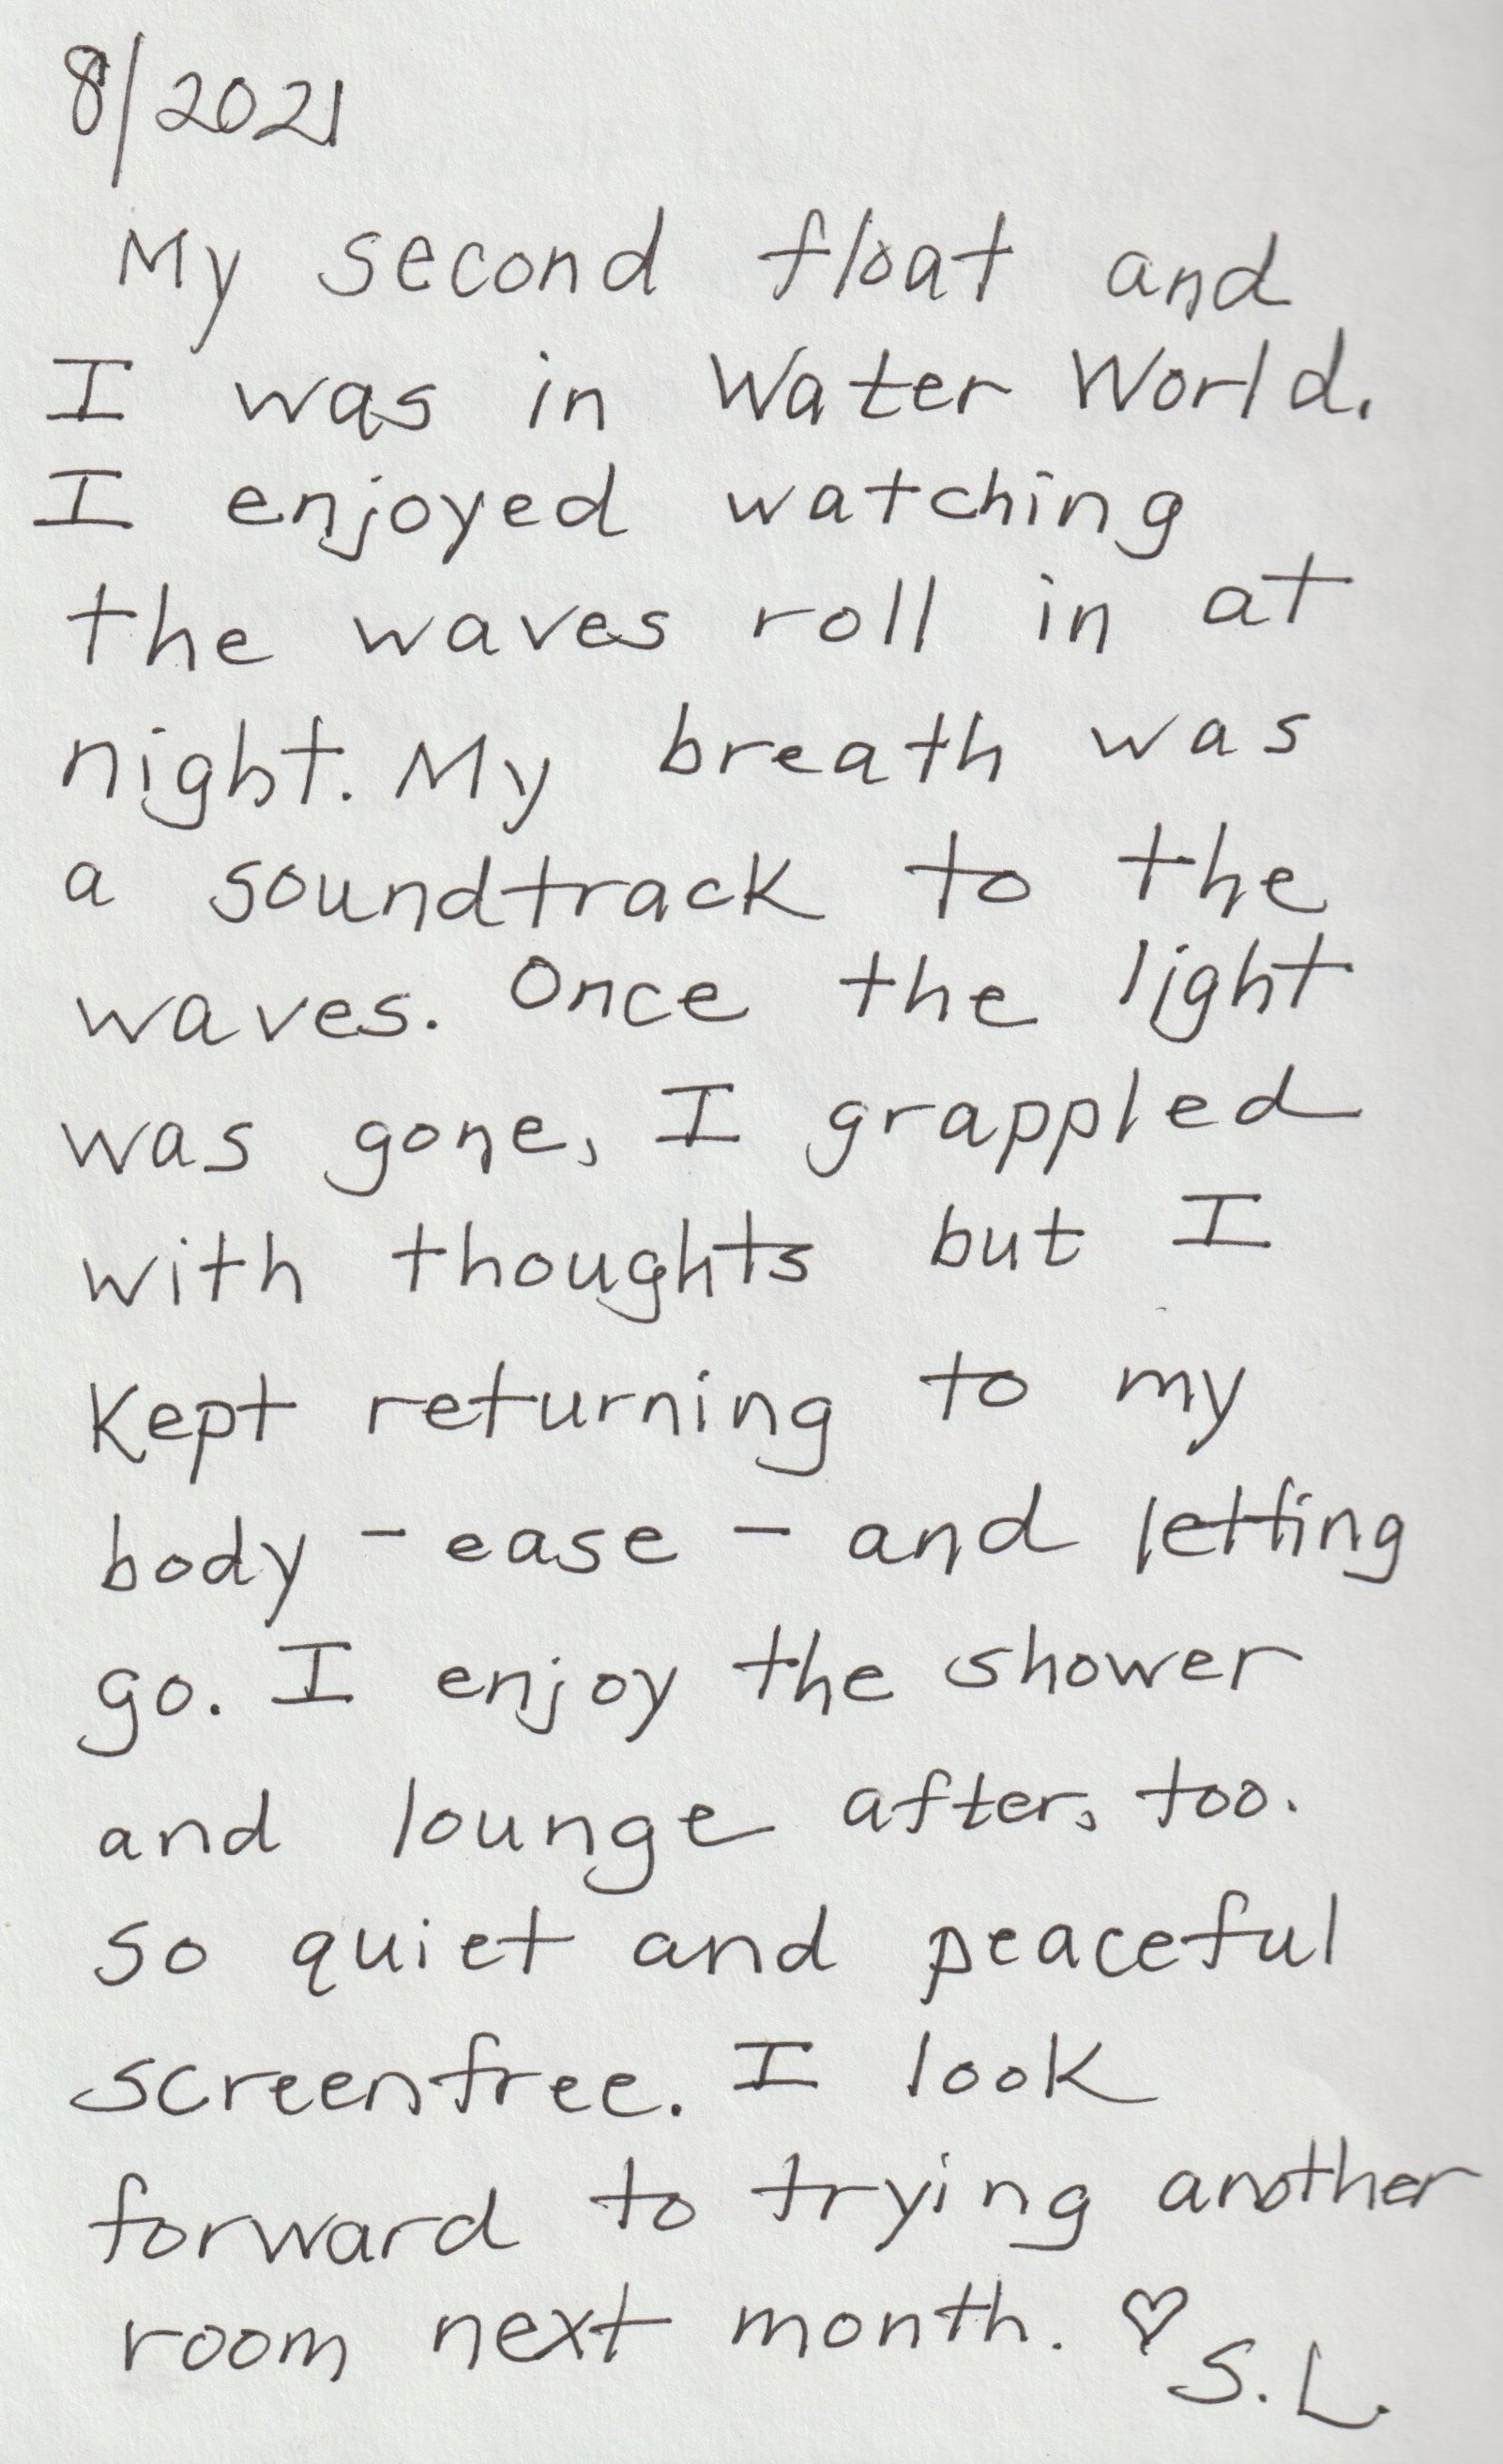 8/2021
My second float and
I was in Water World.
I enjoyed watching
the waves roll in at
night. My breath was
a soundtrack to the
waves. Once the light
was gone, I grappled
with thoughts but I
kept returning to my
body - ease - and letting
go. I enjoy the shower
and lounge after, too.
so quiet and peaceful
screenfree. I look
forward to trying another
room next month. ♡
S.L.